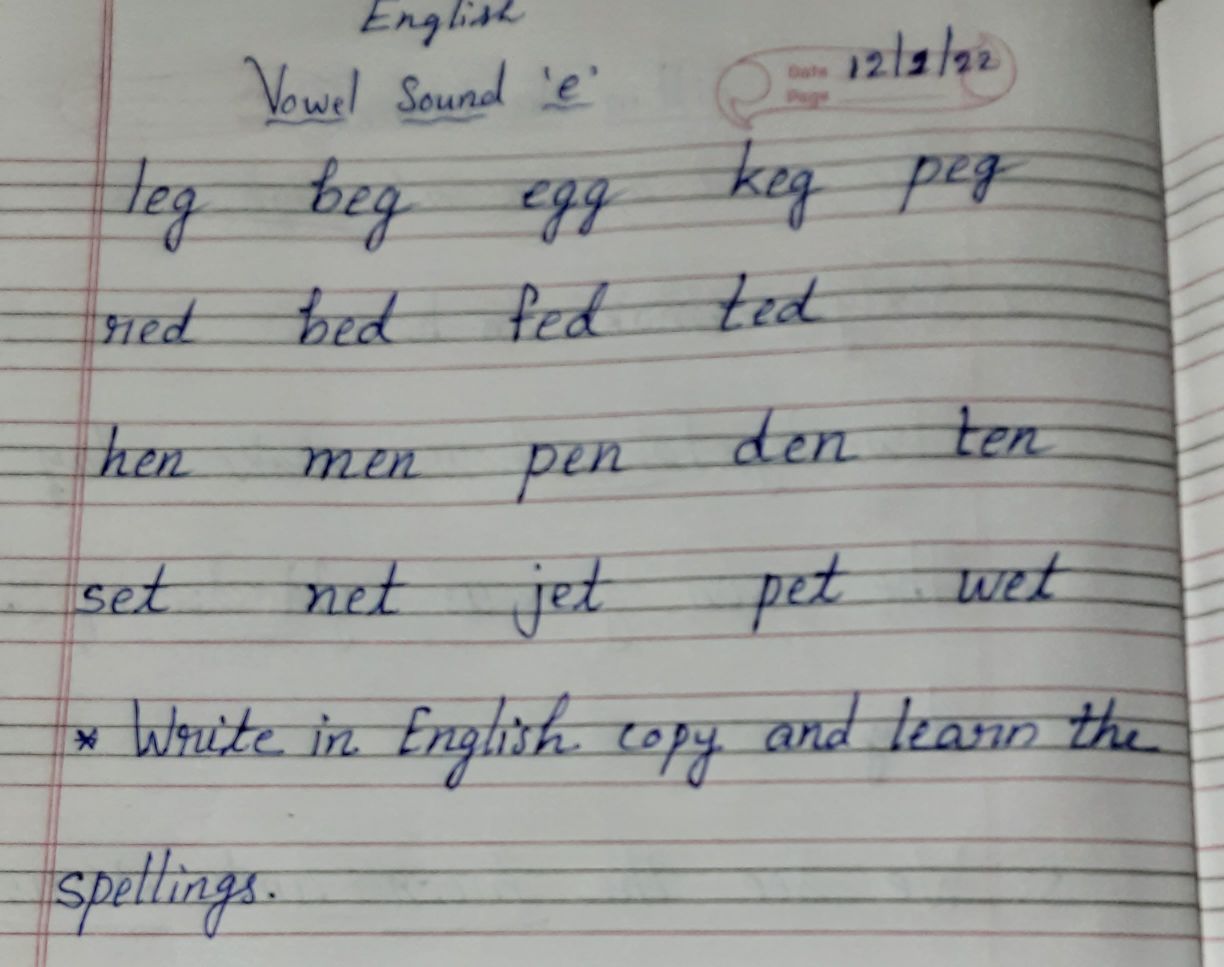 English
Vowel Sound 'e'
Date 12/2/22
Page
leg beg egg keg peg
red bed fed ted
hen men pen den ten
set net jet pet wet
* Write in English copy and learn the
spellings.